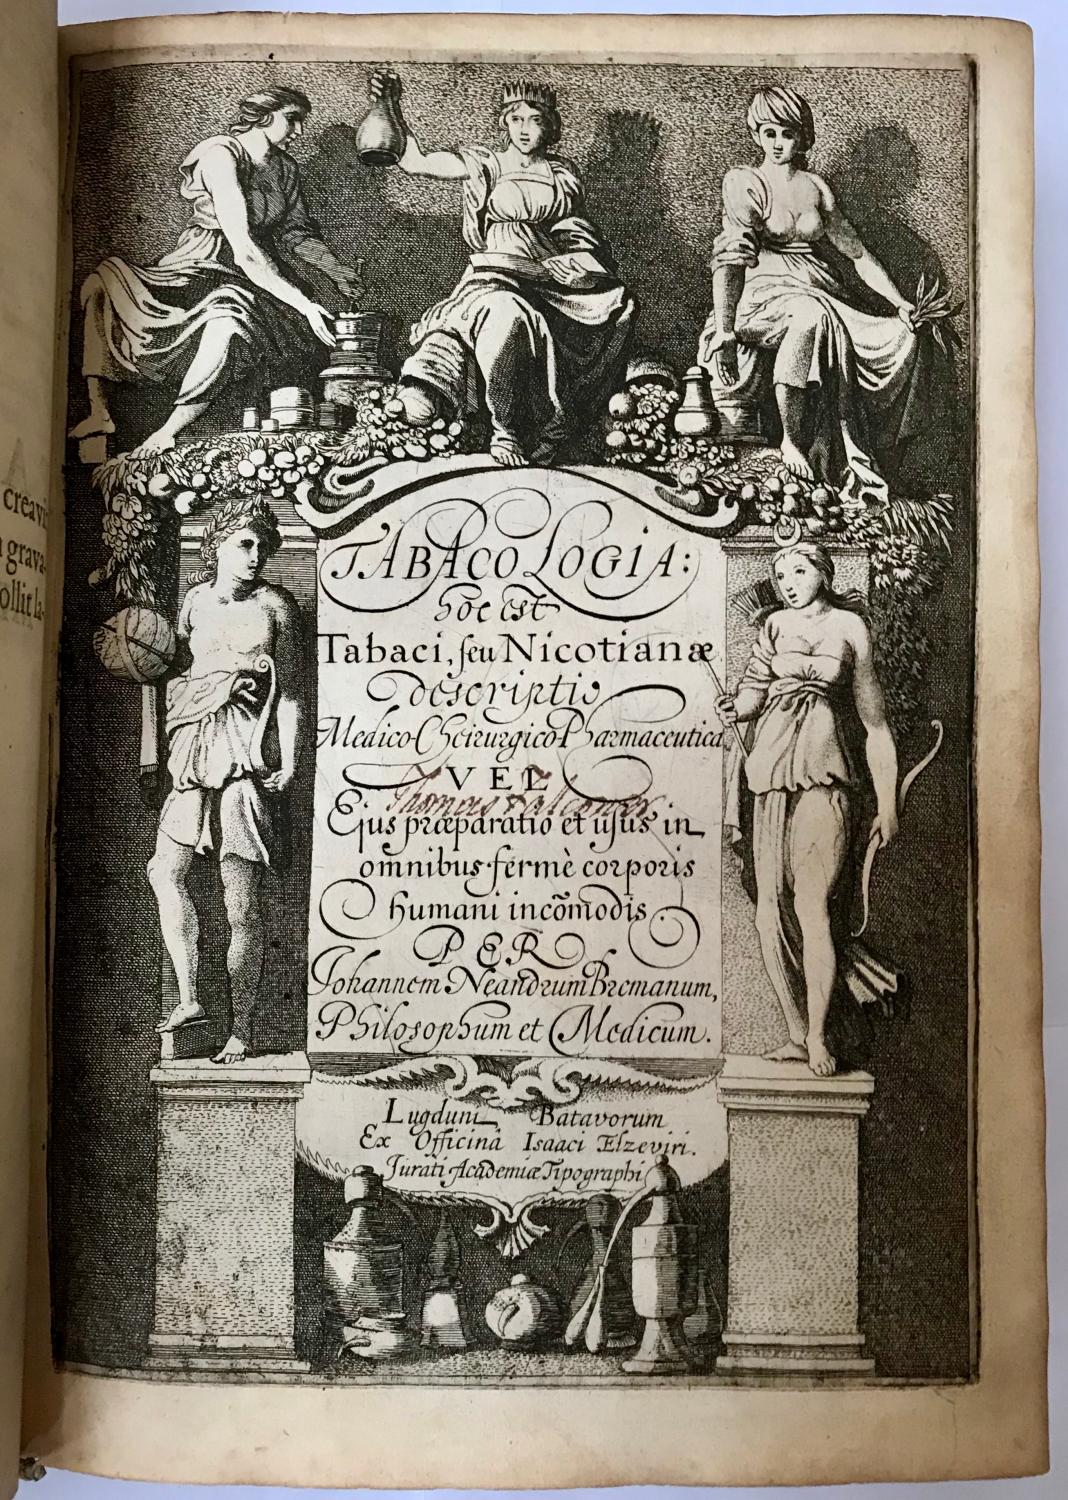 creavi
grava-
ollit la-
TABACOLOGIA:
hoc est
Tabaci, seu Nicotianæ
descriptio
Medico-Cheirurgico-Pharmaceutica
VEL
Thomas Falconer
Ejus præparatio et usus in
omnibus fermè corporis
humani incõmodis.
PER
Johannem Neandrum Bremanum,
Philosophum et Medicum.
Lugduni Batavorum
Ex Officinâ Isaaci Elzeviri.
Jurati Academiæ Tipographi